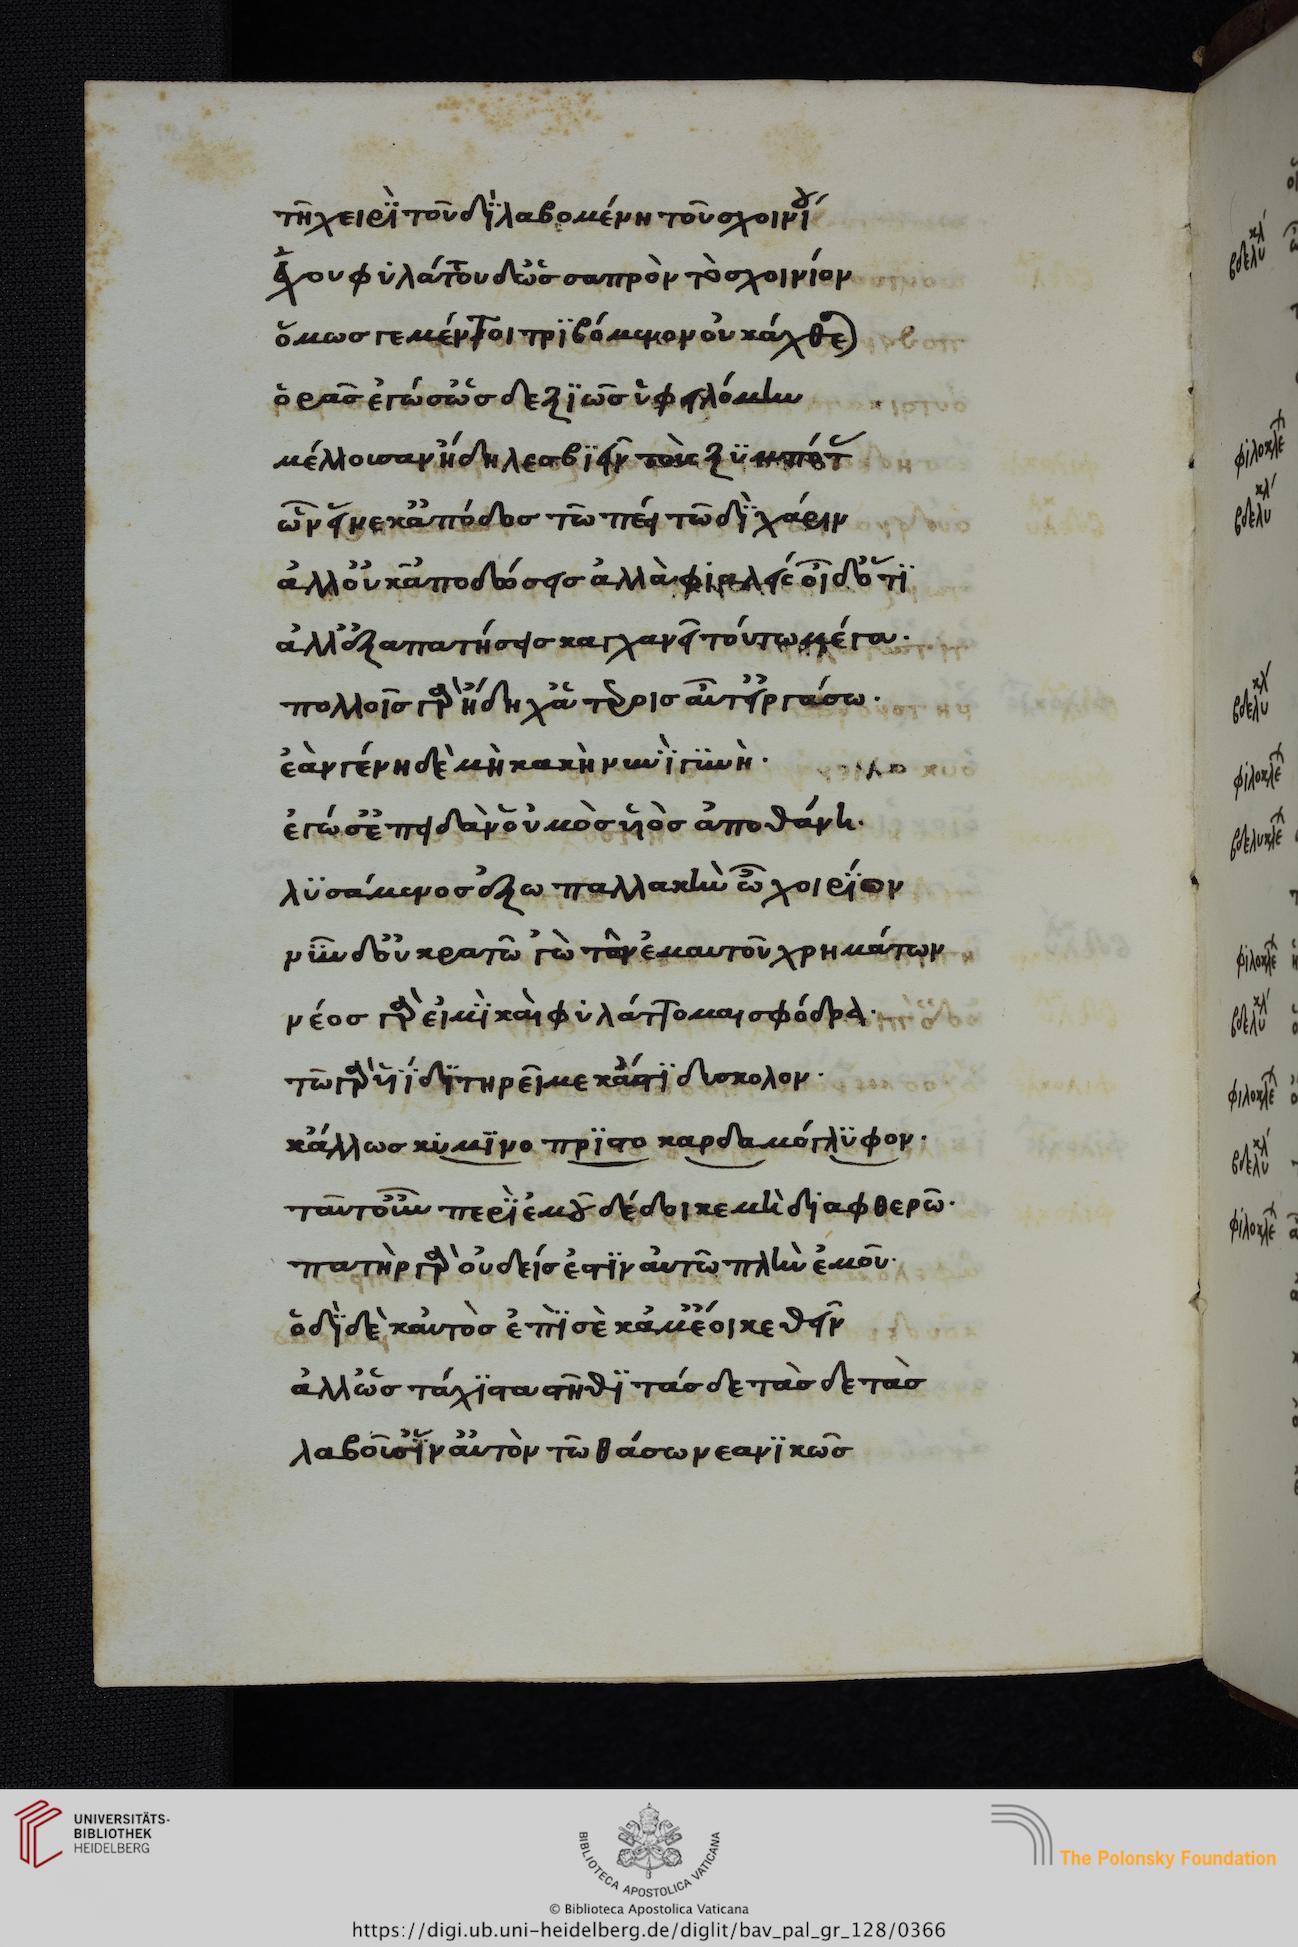 τῆ χειρὶ τουδὶ λαβομένη τοῦ σχοινίου
ἔχου φυλάττου δ' ὡς σαπρὸν τὸ σχοινίον
ὅμως γε μέντοι τριβόμενον οὐκ ἄχθεται
ὁρᾶς ἐγώ σ' ὡς δεξιῶς ὑφειλόμην
μέλλουσαν ἤδη λεσβιεῖν τοὺς ξυμπότας
ὧν εἵνεκ' ἀπόδος τῶ πέει τωδὶ χάριν
ἀλλ' οὐκ ἀποδώσεις ἀλλὰ φιαλεῖ οἶδ' ὅτι
ἀλλ' ἐξαπατήσεις καγχανεῖ τούτω μέγα·
πολλοῖς γὰρ ἤδη χἀτέροις αὔτ' εἰργάσω·
ἐὰν γένη δὲ μὴ κακὴ νυνὶ γυνὴ·
ἐγώ σ' ἐπειδὰν οὑμὸς υἱὸς ἀποθάνη·
λυσάμενος ἕξω παλλακὴν ὦ χοιρίον
νῦν δ' οὐ κρατῶ 'γὼ τῶν ἐμαυτοῦ χρημάτων
νέος γὰρ εἰμὶ καὶ φυλάττομαι σφόδρα·
τῶ γὰρ υἱίδι τηρεῖ με κἄστι δυσκολον·
κἄλλως κυμινο πριστο καρδαμόγλυφον·
ταῦτ' οὖν περὶ ἐμοῦ δέδοικε μὴ διαφθερῶ·
πατὴρ γὰρ οὐδείς ἐστιν αὐτῶ πλὴν ἐμοῦ·
ὁδὶ δὲ καὐτὸς ἐπὶ σὲ κἄμ' ἔοικε θεῖν
ἀλλ' ὡς τάχιστα στῆθι τάσδε τὰς δετὰς
λαβοῦσ' ἵν' αὐτὸν τωθάσω νεανικῶς
βδελυκλ
φιλοκλε
βδελυκλ
βδελυκλ
φιλοκλε
βδελυκλε
φιλοκλε
βδελυκλ
φιλοκλε
βδελυκλ
φιλοκλε
UNIVERSITÄTS-
BIBLIOTHEK
HEIDELBERG
BIBLIOTECA APOSTOLICA VATICANA
The Polonsky Foundation
© Biblioteca Apostolica Vaticana
https://digi.ub.uni-heidelberg.de/diglit/bav_pal_gr_128/0366